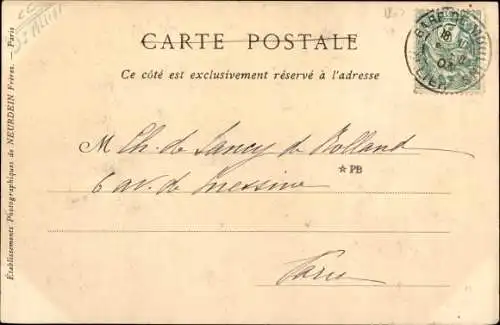 CARTE POSTALE
Ce côté est exclusivement réservé à l'adresse
M Ch. de Lancy de Rolland
6 av. de Messine
☆ PB
Paris
Établissements Photographiques de NEURDEIN Frères. — Paris